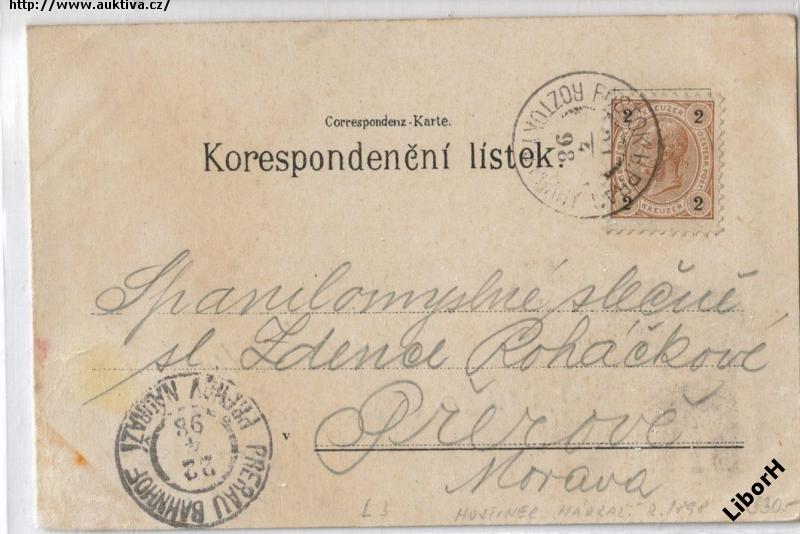 http://www.auktiva.cz/
Correspondenz-Karte.
Korespondenční lístek.
ROZTOK
98
2 KREUZER 2
2 KREUZER 2
Spanilomyslné slečně
sl. Zdence Roháčkové
v Přerově
Morava
PŘEROV NÁDRAŽÍ
22
4
98
PRERAU BAHNHOF
L3
HOSTINEC NÁDRAŽ. R. 1898
30.-
LiborH